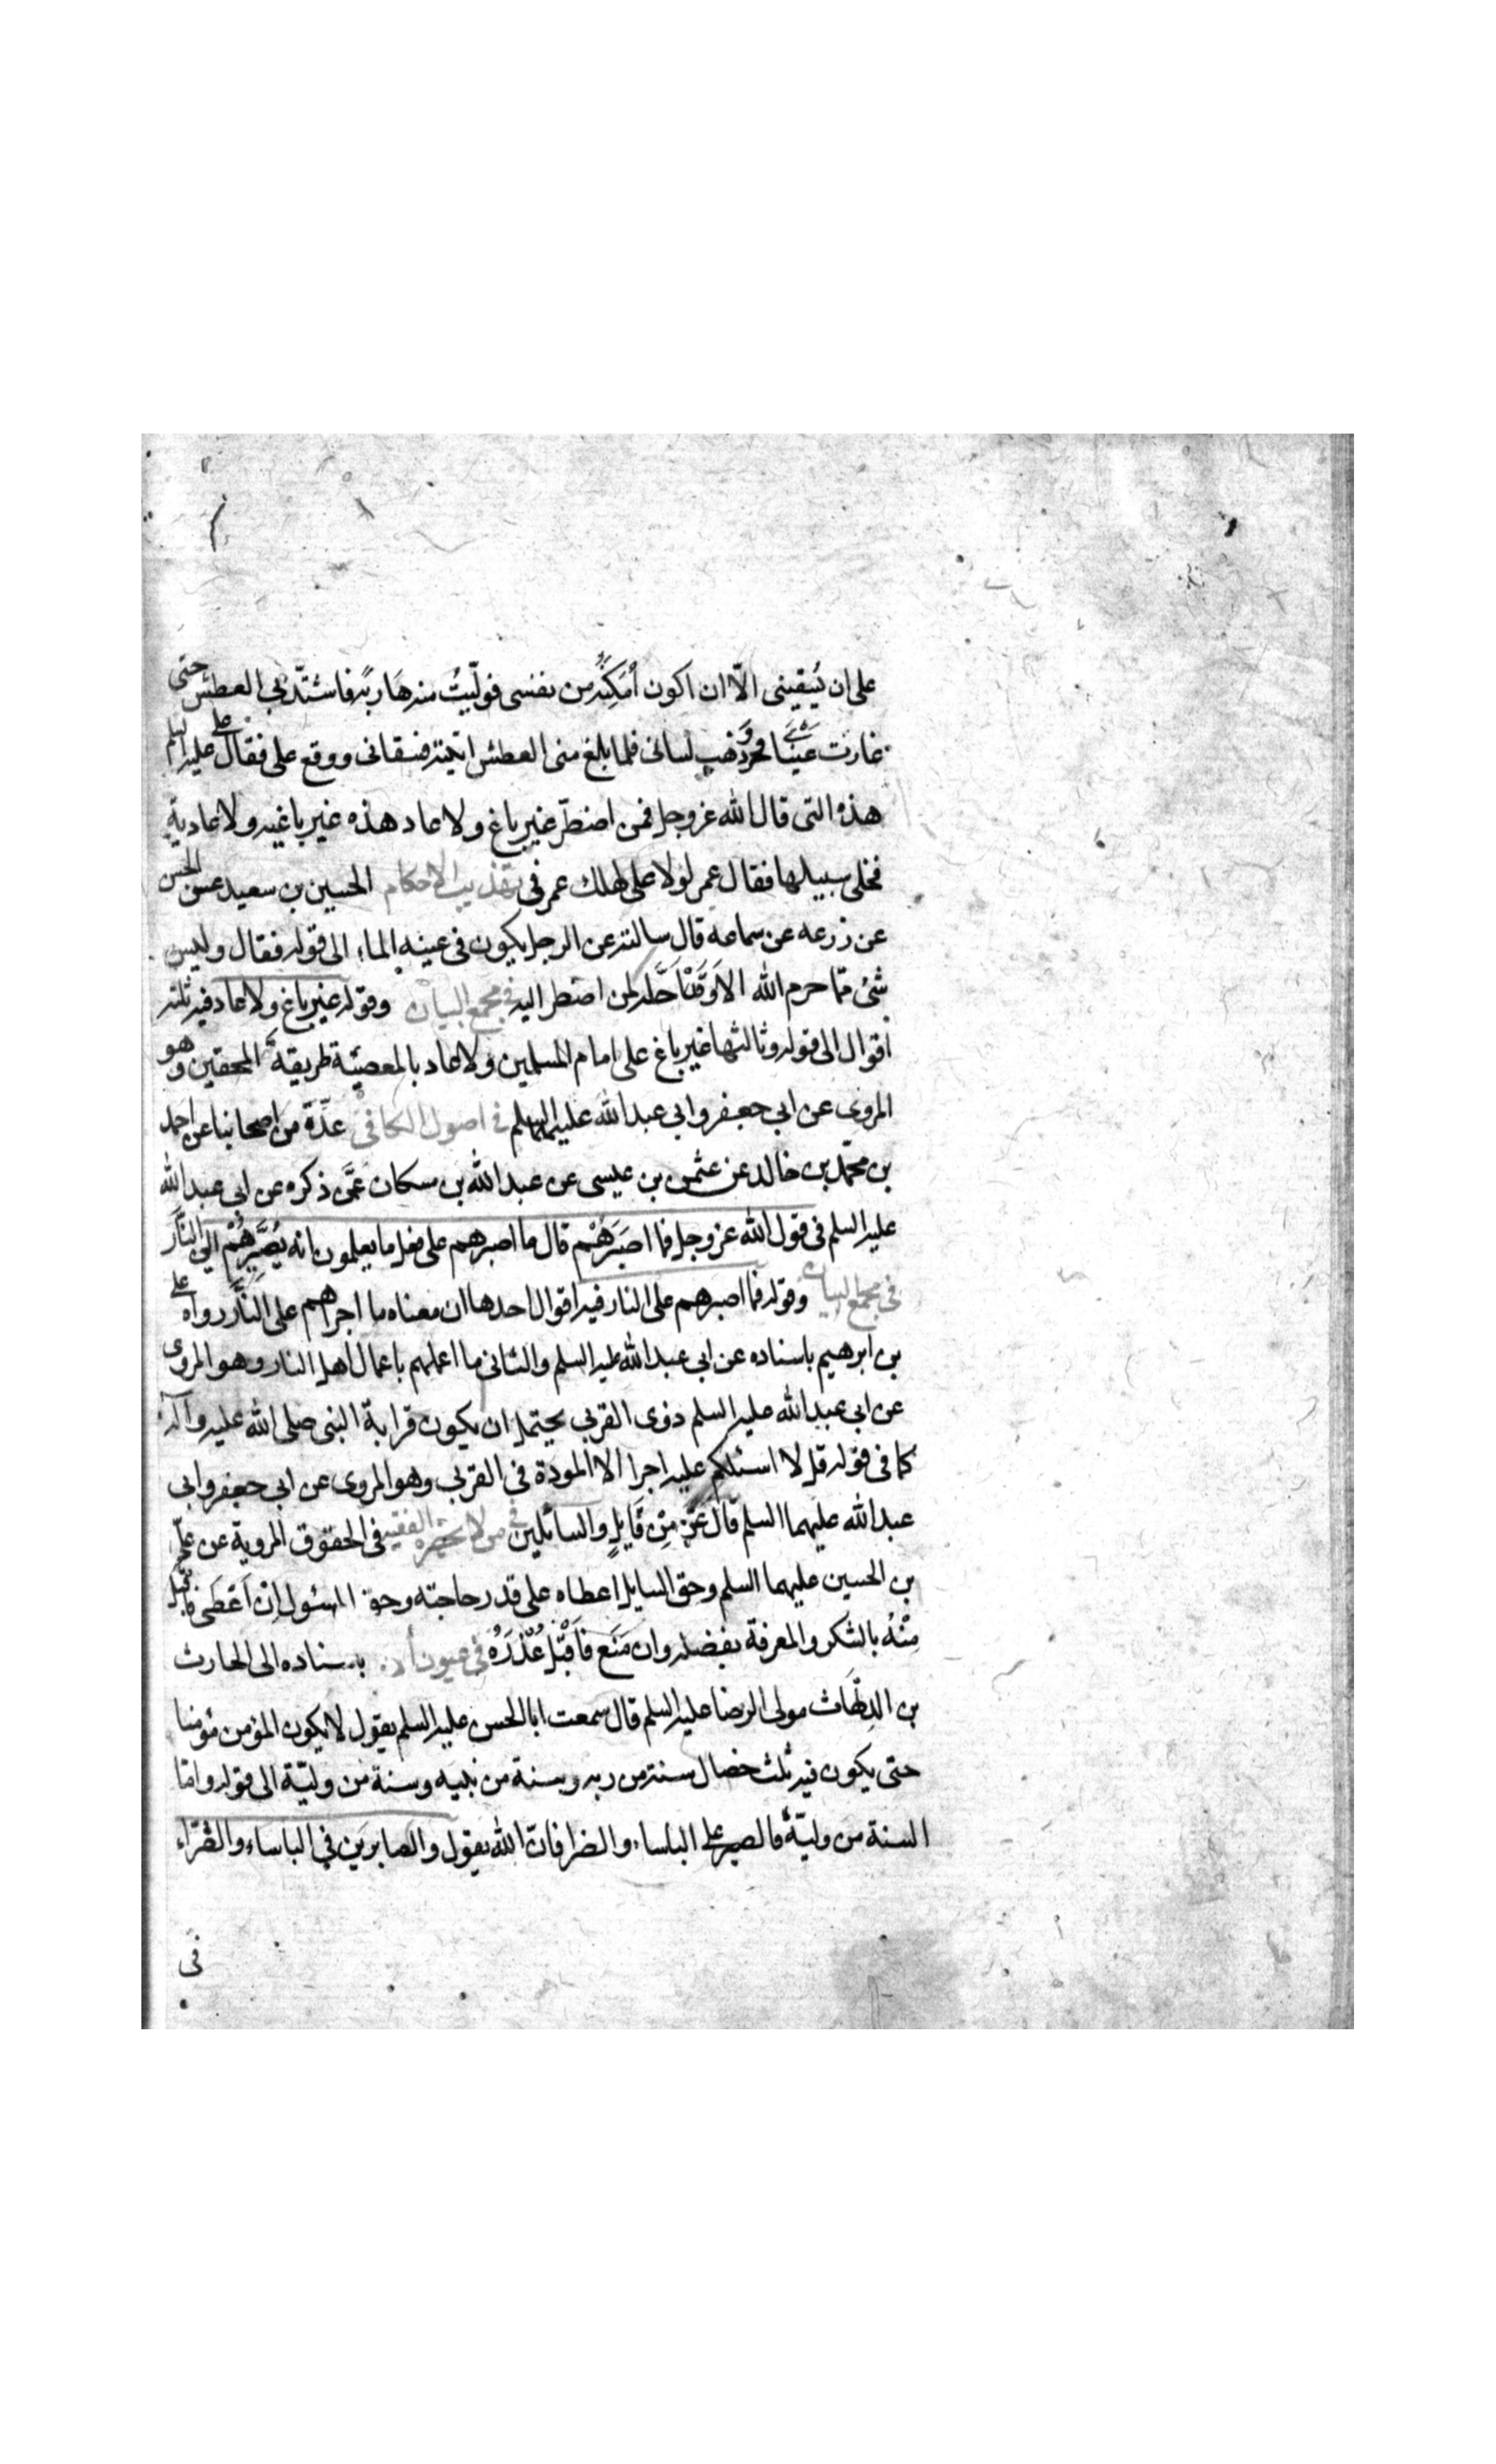 على ان يُسقينى الّا ان اكون اُمَكِّنُه من نفسى فولّيتُ منه هَارِبَةً فاشتدّ بى العطش حتى
غارت عَينَاى وذهب لسانى فلما بلغ منى العطش اتيته فسقانى ووقع على فقال على عليه السلم
هذه التى قال الله عزوجل فمن اضطرّ غير باغ ولا عاد هذه غير باغيه ولا عادية
فخلى سبيلها فقال عمر لولا على لهلك عمر فى تهذيب الاحكام الحسين بن سعيد عن الحسن
عن زرعه عن سماعه قال سالته عن الرجل يكون فى عينيه الماء الى قوله فقال وليس
شئ ممّا حرم الله الا وَقَد اَحَلَّه لمن اضطر اليه فى مجمع البيان وقوله غير باغ ولا عاد فيه ثلثة
اقوال الى قوله وثالثها غير باغ على امام المسلمين ولا عاد بالمعصية طريقة المحقين وهو
المروى عن ابى جعفر وابى عبد الله عليهما السلم فى اصول الكافى عدّة من اصحابنا عن احمد
بن محمّد بن خالد عن عثمن بن عيسى عن عبد الله بن مسكان عمّن ذكره عن ابى عبد الله
عليه السلم فى قول الله عزوجل فما اصبَرَهُمْ قال ما اصبرهم على فعل ما يعلمون انه يُصَيِّرهُمْ الى النَّار
فى مجمع البيان وقوله فما اصبرهم على النار فيه اقوال احدها ان معناه ما اجراهم على النَّار رواه على
بن ابرهيم باسناده عن ابى عبد الله عليه السلم والثانى ما اعملهم باعمال اهل النار وهو المروى
عن ابى عبد الله عليه السلم ذوى القربى يحتمل ان يكون قرابة النبى صلى الله عليه وآله
كما فى قوله قل لا اسئلكم عليه اجرا الا المودة فى القربى وهو المروى عن ابى جعفر وابى
عبد الله عليهما السلم قال عَزّ مِنْ قَايِلٍ والسائلين فى من لا يحضره الفقيه فى الحقوق المروية عن علىّ
بن الحسين عليهما السلم وحق السايل اعطاه على قدر حاجته وحق المسئول اِنْ اَعْطَى فاقبَل
مِنْهُ بالشكر والمعرفة بفضله وان مَنَع فَاقْبَل عُذْرَهُ فى عيون باسناده الى الحارث
بن الدِلّهَاث مولى الرضا عليه السلم قال سمعت ابا الحسن عليه السلم يقول لا يكون المؤمن مؤمنا
حتى يكون فيه ثلث خصال سنة من ربه وسنة من نبيه وسنة من وليّة الى قوله وامّا
السنة من وليّة فالصبر على الباساء والضرا فان الله يقول والصابرين فى الباساء والضّرّاء
فى